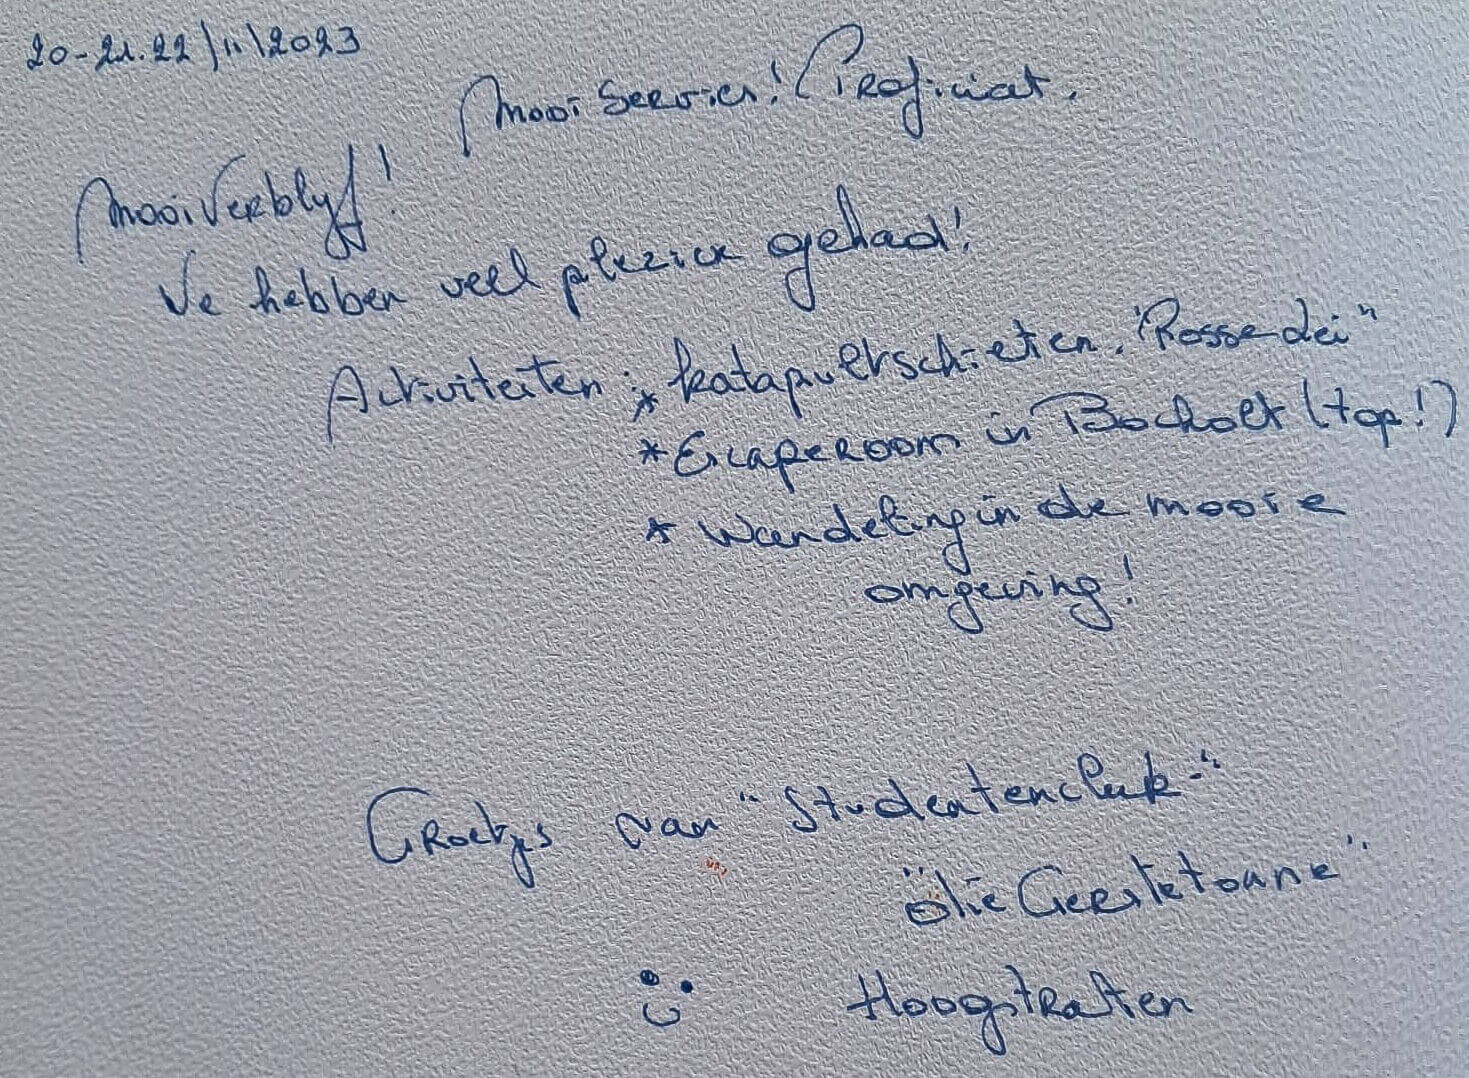 20-21.22/11/2023
Mooi Servies! Proficiat.
Mooi Verblijf!
We hebben veel plezier gehad!
Activiteiten : * katapultschieten. "Rosse dei"
* Escaperoom in Bocholt (top!)
* Wandeling in de mooie
omgeving!
Groetjes van "Studentenclub-"
Ölie Geestetoane"
Hoogstraten